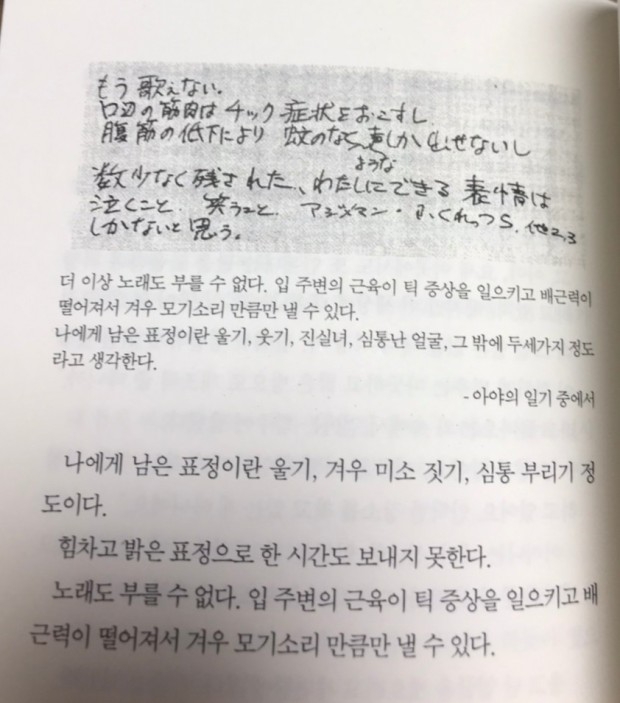 もう歌えない。
口辺の筋肉はチック症状をおこすし
腹筋の低下により 蚊のなく声しか出せないし
ような
数少なく残された、わたしにできる表情は
泣くこと、笑うこと、アジメマン・ふくれっつら、他2つ3
しかないと思う。
더 이상 노래도 부를 수 없다. 입 주변의 근육이 틱 증상을 일으키고 배근력이
떨어져서 겨우 모기소리 만큼만 낼 수 있다.
나에게 남은 표정이란 울기, 웃기, 진실녀, 심통난 얼굴, 그 밖에 두세가지 정도
라고 생각한다.
- 아야의 일기 중에서
나에게 남은 표정이란 울기, 겨우 미소 짓기, 심통 부리기 정
도이다.
힘차고 밝은 표정으로 한 시간도 보내지 못한다.
노래도 부를 수 없다. 입 주변의 근육이 틱 증상을 일으키고 배
근력이 떨어져서 겨우 모기소리 만큼만 낼 수 있다.